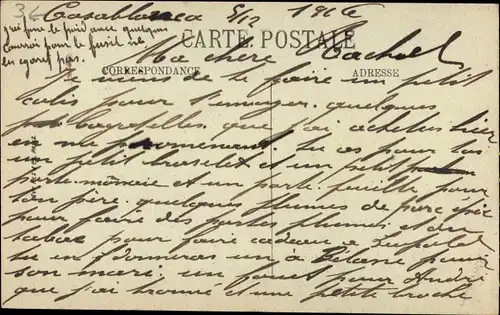 Casablanca 5/12 1916
quelques
courroi pour le fusil
pas.
CARTE POSTALE
Ma chère Rachel
CORRESPONDANCE
ADRESSE
Je viens de te faire un petit
colis pour t'envoyer quelques
que j'ai achetés hier
en me promenant. tu as pour toi
un petit bracelet et un petit
porte-monaie et un porte-feuille pour
ton père. quelques plumes de porc épic
pour faire des portes plumes et du
tabac pour faire cadeau à
tu en donneras un à pour
son mari. un pour André
que j'ai trouvé et une petite broche